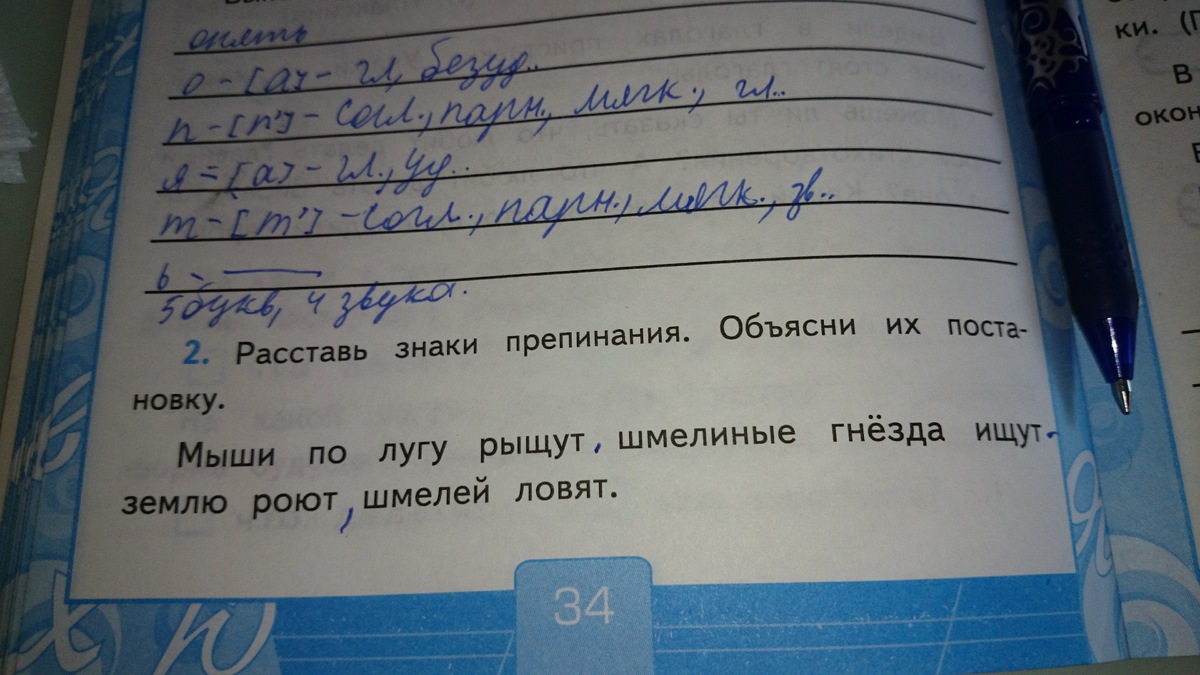 опять
о - [а] - гл, безуд..
п - [п'] - согл., парн., мягк., гл..
я = [а] - гл., уд..
т - [т'] - согл., парн., мягк., зв..
ь -
5 букв, 4 звука.
2. Расставь знаки препинания. Объясни их поста-
новку.
Мыши по лугу рыщут, шмелиные гнёзда ищут,
землю роют, шмелей ловят.
34
ки. (П
В
окон